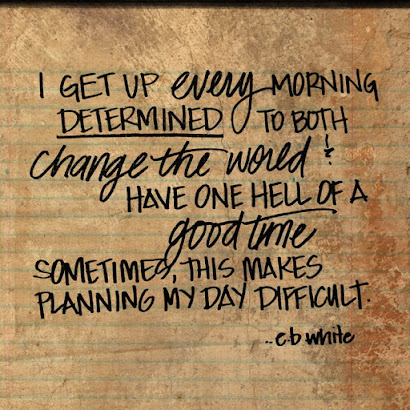 I GET UP every MORNING
DETERMINED TO BOTH
change the world &
HAVE ONE HELL OF A
good time
SOMETIMES, THIS MAKES
PLANNING MY DAY DIFFICULT.
-- e.b white